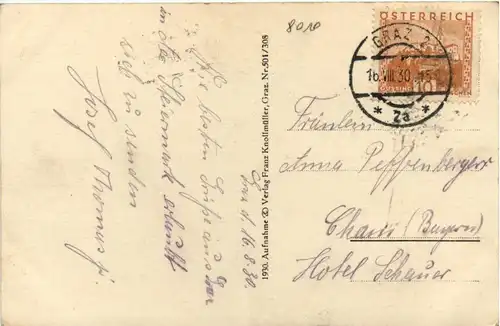 8010
ÖSTERREICH
GRAZ 2
16.VIII.30
* 2a *
GÜSSING
10
Fräulein
Anna Peffenberger
Cham (Bayern)
Hotel Schauer
1930. Aufnahme Verlag Franz Knollmüller, Graz. Nr.501/308
Graz d 16.8.30.
Die besten Grüße aus
in der Steiermark erlaubt
sich zu senden
Josef Thomas